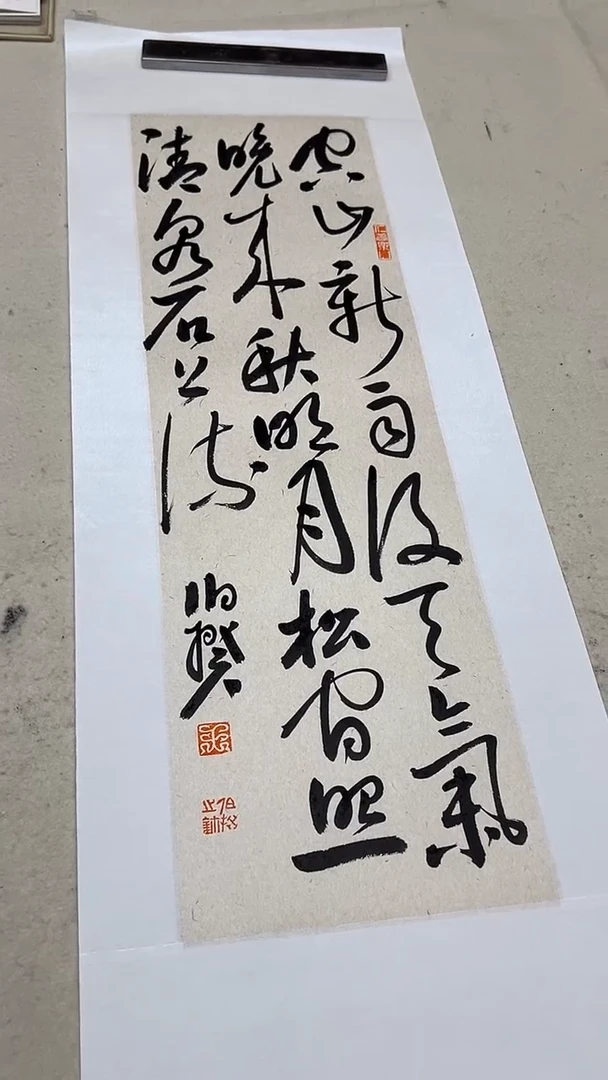 空山新雨後天氣
晚來秋明月松間照
清泉石上流